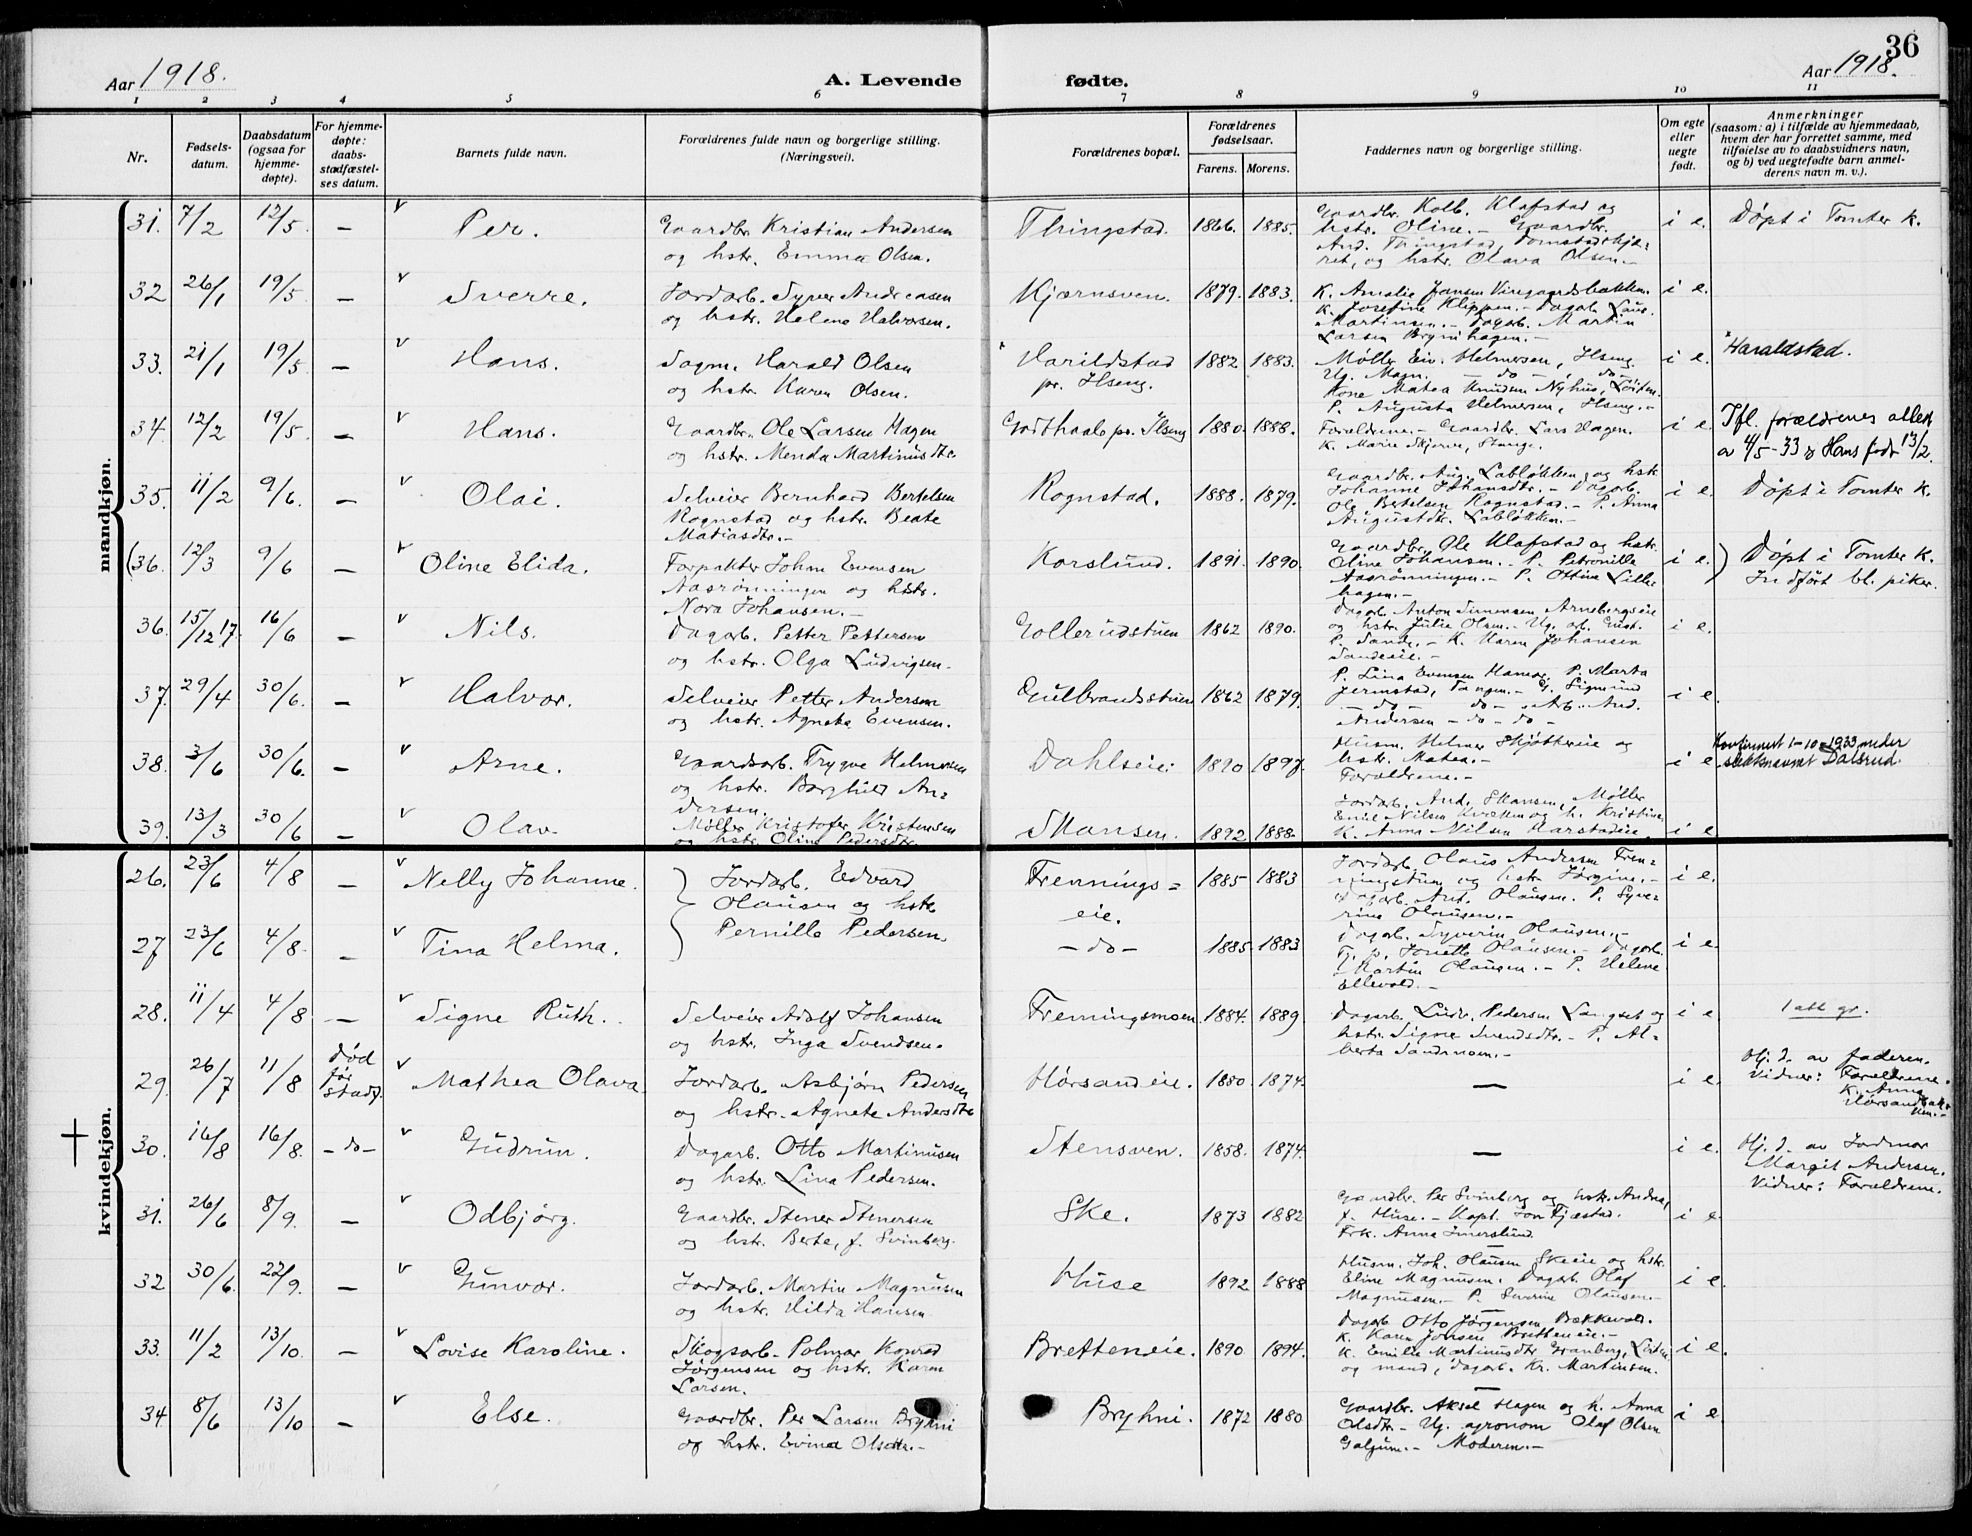 36
Aar 1918. A. Levende fødte. Aar 1918.
1 2 3 4 5 6 7 8 9 10 11
Nr.
Fødsels-
datum.
Daabsdatum
(ogsaa for
hjemme-
døpte).
For hjemme-
døpte:
daabs-
stadfæstel-
ses datum.
Barnets fulde navn.
Forældrenes fulde navn og borgerlige stilling.
(Næringsvei).
Forældrenes bopæl.
Forældrenes
fødselsaar.
Farens. Morens.
Faddernes navn og borgerlige stilling.
Om egte
eller
uegte
født.
Anmerkninger
(saasom: a) i tilfælde av hjemmedaab,
hvem der har forrettet samme, med
tilføielse av to daabsvidners navn,
og b) ved uegtefødte barn anmel-
derens navn m. v.).
mandkjøn.
31. 7/2 12/5 — Per.
Gaardbr. Kristian Andersen
og hstr. Emma Olsen.
Thingstad. 1866. 1885.
Gaardbr. Kolb. Klafstad og
hstr. Oline. — Gaardbr.
And. Thingstad,
og hstr. Olava Olsen.—
i e. Døpt i Tomter k.
32 26/1 19/5 — Sverre.
Jordarb. Syver Andreasen
og hstr. Helene Halvorsen.
Kjærnsven. 1879. 1883.
K. Amalie Jansen Vingaardsbakken.
K. Josefine Klippen. — Dagarb. Laur.
Martinsen. — Dagarb. Martin
Larsen Brynihagen. —
i e.
33. 21/1 19/5 — Hans.
Sagm. Harald Olsen
og hstr. Karen Olsen.
Harildstad
pr. Ilseng.
1882 1883.
Møller Eiv. Helmersen, Ilseng
Ug. Magn. — do — , — do —
Kone Matea Knudsen Nyhus, Løiten.
P. Augusta Helmersen, Ilseng.—
i e. Haraldstad.
34. 12/2 19/5 — Hans.
Gaardbr. Ole Larsen Hagen
og hstr. Menda Martinusdtr.
Godthaab pr. Ilseng 1880. 1888.
Forældrene. — Gaardbr. Lars Hagen.
K. Marie Skjerve, Stange.
i e. Ifl. forældrenes attest
av 4/5-33 er Hans født 13/2.
35. 11/2 9/6 — Olai.
Selveier Bernhard Bertelsen
Rognstad og hstr. Beate
Matiasdtr.—
Rognstad. 1888. 1879.
Gaardbr. Aug. Labløkken, og hstr.
Johanne Johansdtr. — Dagarb.
Ole Bertelsen Rognstad. — P. Anna
Augustdtr. Labløkken.—
i e. Døpt i Tomter k.
(36. 12/3 9/6 — Oline Elida.
Forpakter Johan Evensen
Aasrønningen og hstr.
Nora Johansen.—
Korslund. 1891. 1890.
Gaardbr. Ole Klafstad og hstr.
Oline Johansen. — P. Petronille
Aasrønningen. — P. Ottine Lille-
hagen.—
i e. ) Døpt i Tomter k.
Indført bl. piker.
36. 15/12 17. 16/6 — Nils.
Dagarb. Petter Pettersen
og hstr. Olga Ludvigsen.
Gollerudstuen 1862 1890.
Dagarb. Anton Simensen, Arnebergseie
og hstr. Julie Olsen. — Ug. arb. Gust.
P. Sande. — K. Karen Johansen
Sandeeie.—
i e.
37. 29/4 30/6. — Halvor.
Selveier Petter Andersen
og hstr. Agneta Evensen.
Gulbrandstuen 1862 1879.
P. Lina Evensen Hamar, P. Marta
Jermstad, Tangen. — G. Sigmund
— do — do — Arb. And.
Andersen — do — do —
i e.
38. 3/6 30/6. — Arne.
Gaardsarb. Trygve Helmersen
og hstr. Borghild An-
dersen.
Dahlseie. 1890 1897.
Husm. Helmer Skjøttereie og
hstr. Matea.—
Forældrene.—
i e. Konfirmert 1-10-1933 under
slektsnavnet Dalsrud.
39. 13/3 30/6 — Olav.
Møller Kristofer Kristensen
og hstr. Oline Pedersdtr.
Skansen. 1892 1888.
Jordarb. And. Skansen, Møller
Emil Nilsen Kværken og h. Kristine,
K. Anna Nilsen Harstadeie.
i e.
kvindekjøn.
26. 23/6 4/8 — Nelly Johanne.
Jordarb. Edvard
Olausen og hstr.
Pernille Pedersen.
Frennings-
eie.
1885 1883
Jordarb. Olaus Andersen Fren-
ningstuen og hstr. Jørgine.—
Dagarb. Ant. Olausen. P. Syve-
rine Olausen.—
i e.
27 23/6 4/8. — Tina Helma.
— do — 1885. 1883
Dagarb. Syverin Olausen.—
Tj. p. Jonette Olausen. — Dagarb.
Martin Olausen. — P. Helene
Ellevold.—
i e.
28. 11/4 4/8 — Signe Ruth.
Selveier Adolf Johansen
og hstr. Inga Svendsen.
Frenningsmoen. 1884. 1889
Dagarb. Ludv. Pedersen Langset og
hstr. Signe Svendsdtr. — P. Al-
berta Sandmoen.—
i e. 1 att gr.
29. 26/7 11/8 død
før
stadf.
Mathea Olava.
Jordarb. Asbjørn Pedersen
og hstr. Agnete Andersdtr.
Hørsandeie. 1880. 1874.
—
i e. Hj. d. av faderen.
Vidner: Forældrene.
K. Anna
Hørsandbak-
ken.—
30. 16/8 16/8. — do — Gudrun.
Dagarb. Otto Martinusen
og hstr. Lina Pedersen.
Stensven. 1858. 1874.
—
i e. Hj. d. av Jordmor
Margit Andersen.
Vidner: Forældrene.
31. 26/6 8/9. — Odbjørg.
Gaardbr. Stener Stenersen
og hstr. Berte, f. Svinberg.
Ske. 1873 1882
Gaardbr. Per Svinberg og hstr. Andrea,
f. Huse. — Kapt. Jon Fjæstad.
Frk. Anna Imerslund.
i e.
32 30/6. 22/9. — Gunvor.
Jordarb. Martin Magnusen
og hstr. Hilda Hansen
Huse 1892 1888
Husm. Joh. Olausen Skeeie og hstr.
Eline Magnusen. Dagarb. Olaf
Magnusen. — P. Severine Olausen.—
i e.
33. 11/2 13/10. — Lovise Karoline.
Skogsarb. Palmar Konrad
Jørgensen og hstr. Karen
Larsen.
Bretteneie. 1890 1894.
Dagarb. Otto Jørgensen, Bækkevold.
K. Karen Jonsen Bretteneie.—
K. Emilie Martinusdtr. Granberg, Løiten
og mand, dagarb. Kr. Martinsen.
i e.
34. 8/6 13/10 — Else.
Gaardbr. Per Larsen Bryhni
og hstr. Evinda Olsdtr.—
Bryhni. 1872 1880
Gaardbr. Aksel Hagen og h. Anna
Olsdtr. — Ug. agronom Olaf Olsen
Galgum. — Moderen.—
i e.